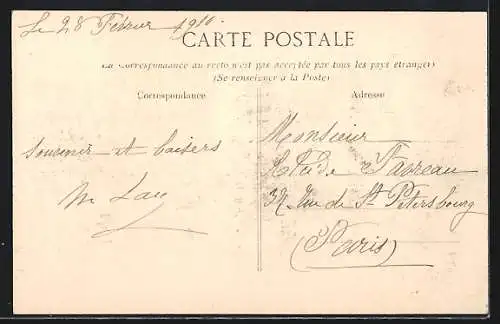 Le 28 Février 1910
CARTE POSTALE
La Correspondance au recto n'est pas acceptée par tous les pays étrangers
(Se renseigner à la Poste)
Correspondance
Adresse
Souvenir et baisers
M
Monsieur
Favreau
32 Rue de St Petersbourg
(Paris)